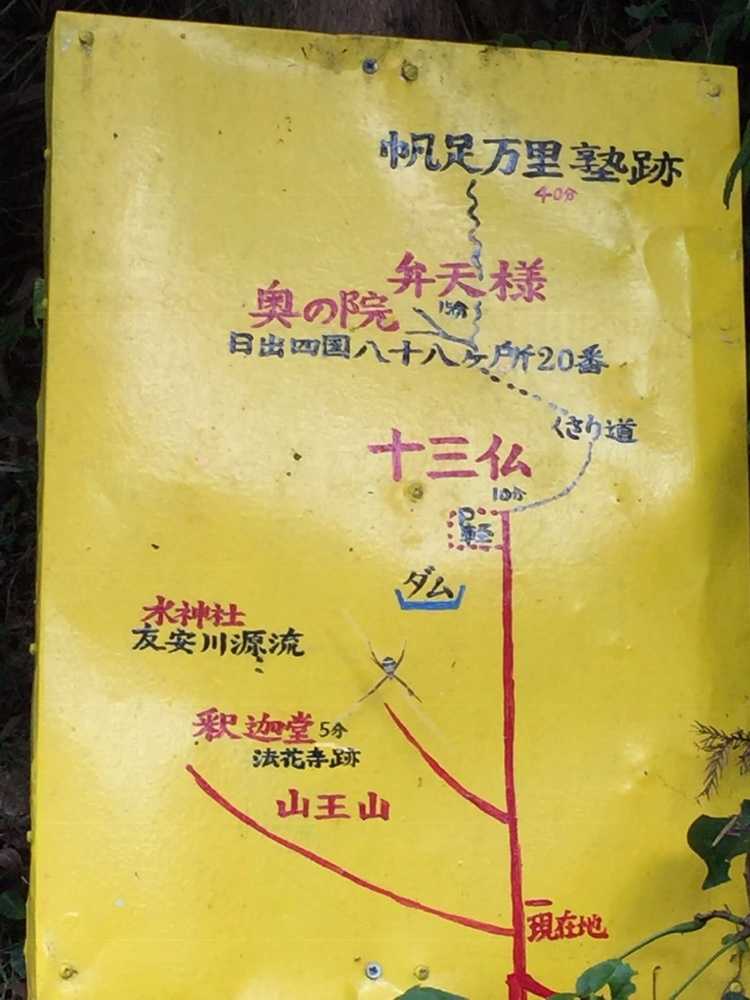 帆足万里塾跡
40分
弁天様
15分
奥の院
日出四国八十八ヶ所20番
くさり道
十三仏
10分
軽
ダム
水神社
友安川源流
釈迦堂 5分
法花寺跡
山王山
現在地